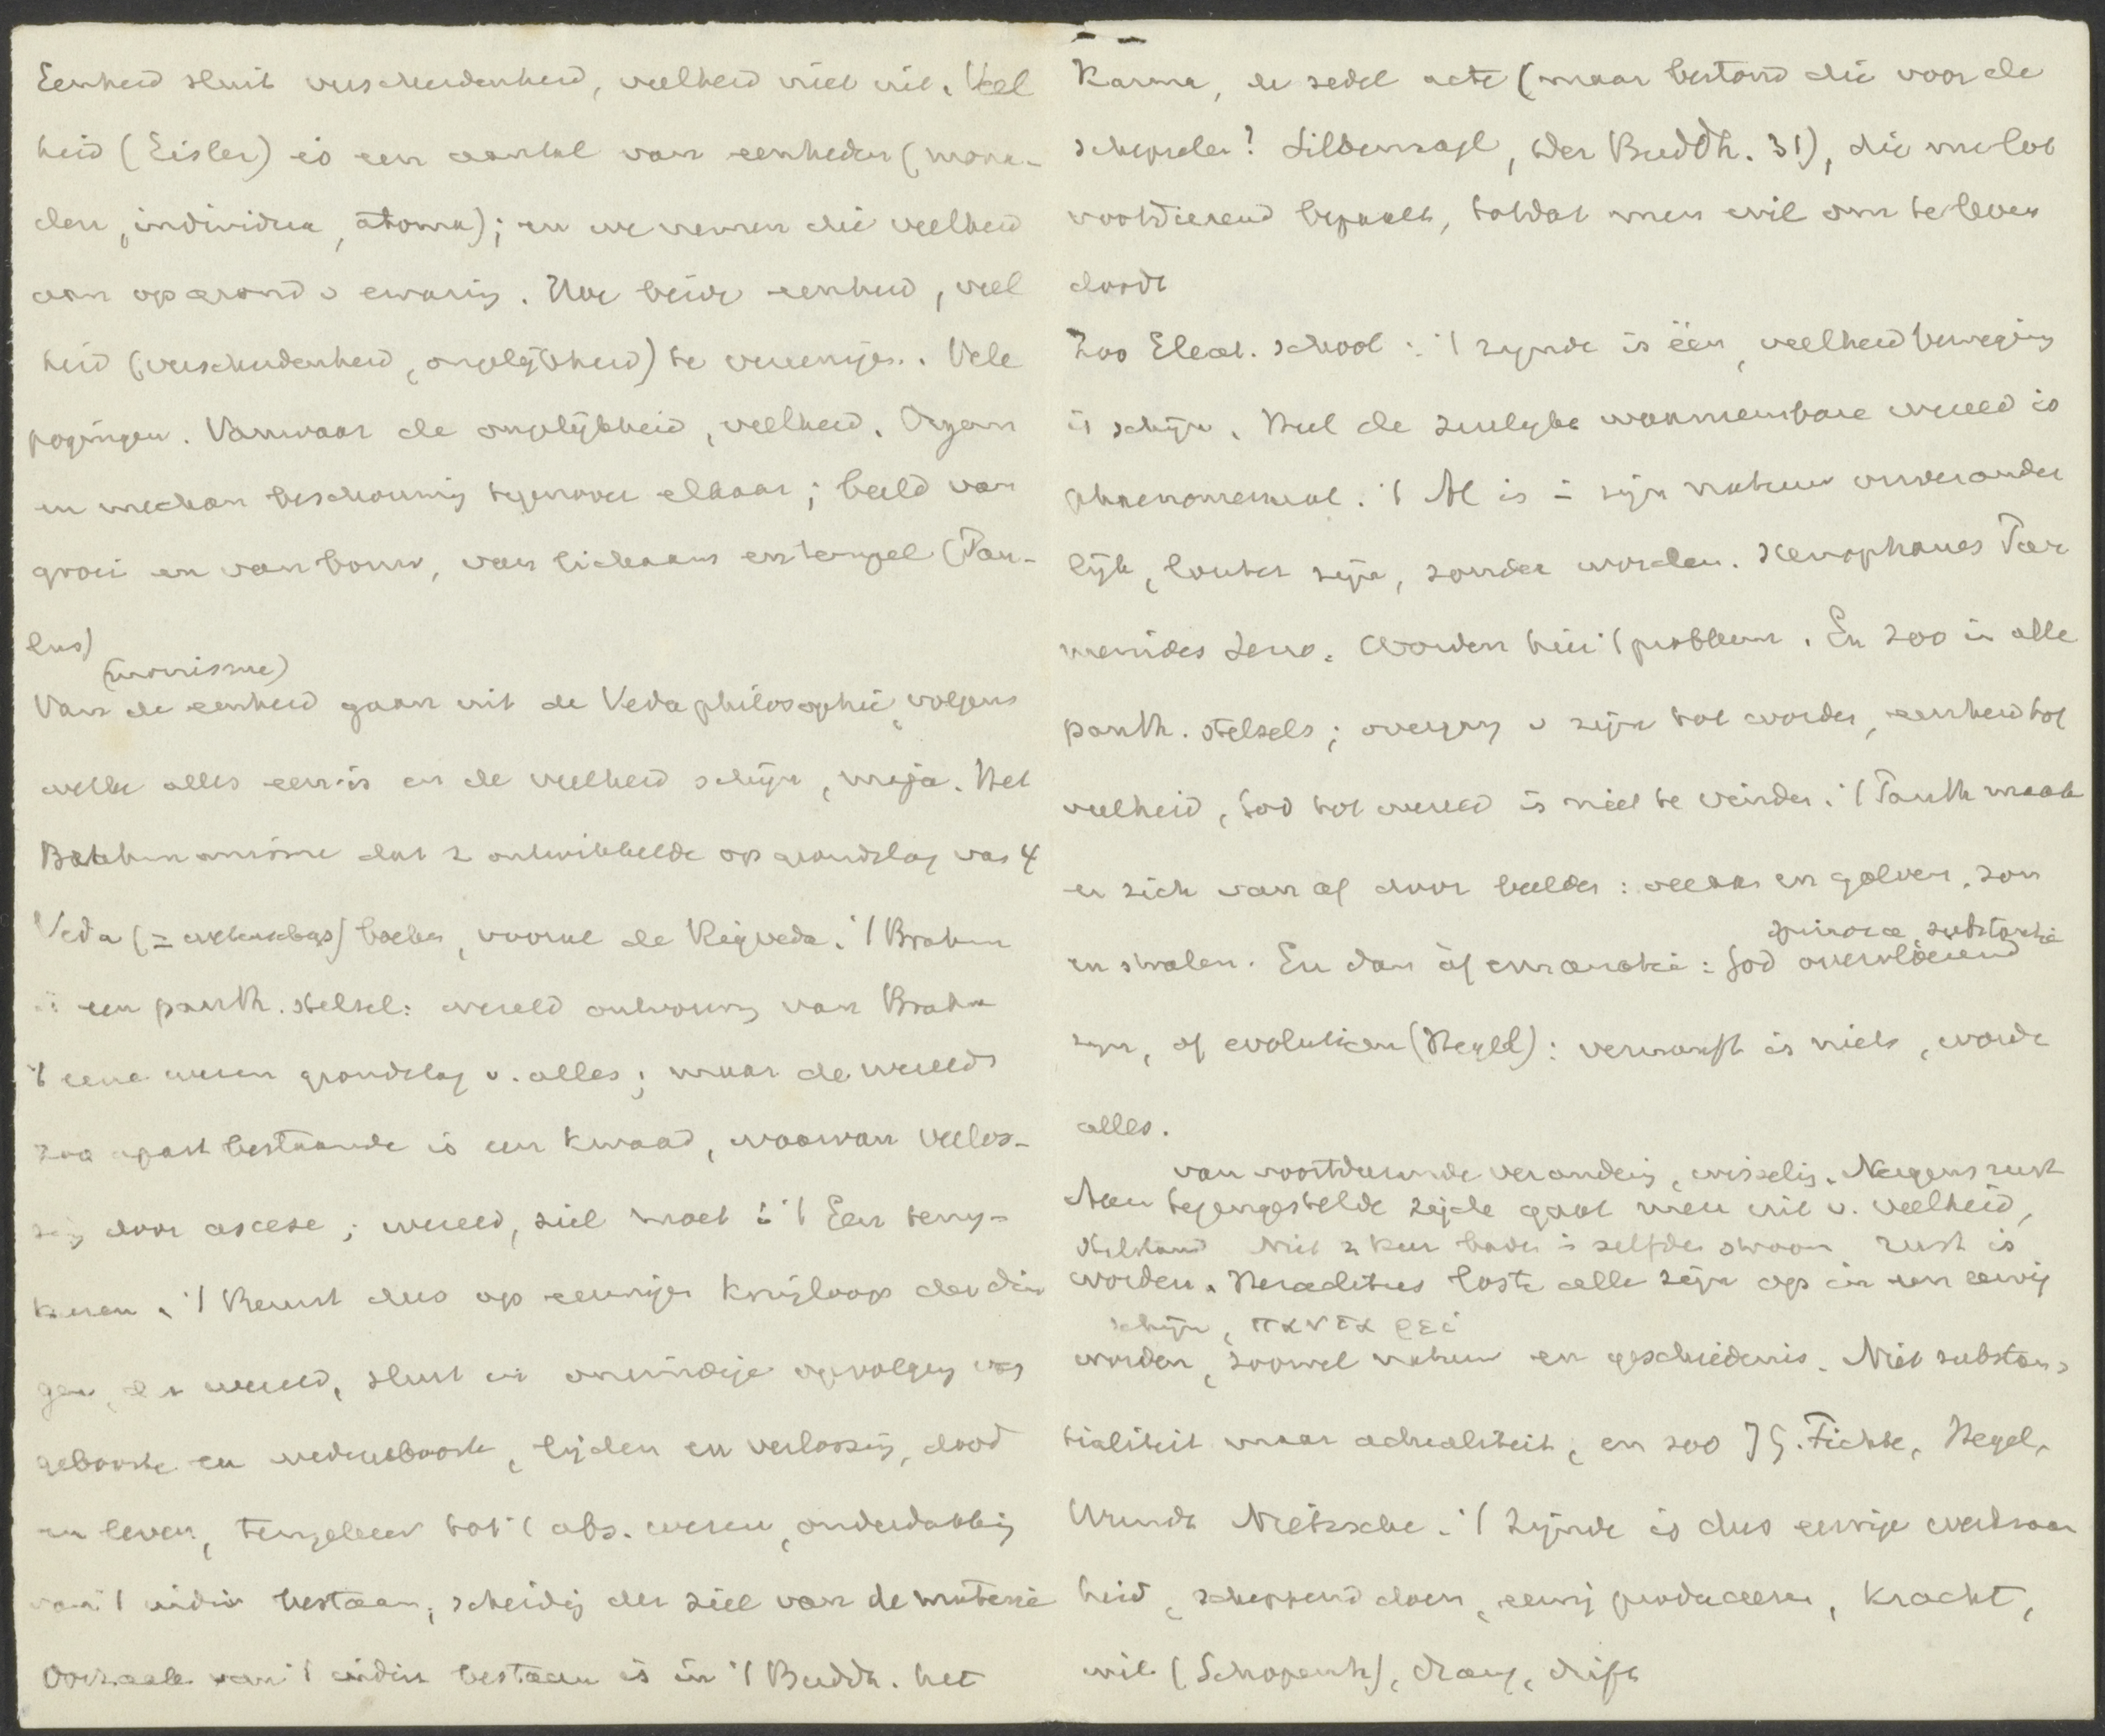 Eenheid sluit verscheidenheid, veelheid niet uit. Veel
heid (Eisler) is een aantal van eenheden (mona-
den, individua, atoma); en we nemen die veelheid
aan op grond v ervaring. Hoe beide eenheid, veel
heid (verscheidenheid, ongelijkheid) te vereenigen. Vele
pogingen. Vanwaar de ongelijkheid, veelheid. Organ
en mechan beschouwing tegenover elkaar; beeld van
groei en van bouw, van lichaam en tempel (Pau-
lus)
(monisme)
Van de eenheid gaan uit de Vedaphilosophie, volgens
welke alles een is en de veelheid schijn, maja. Het
Brahmanisme dat z ontwikkelde op grondslag van 4
Veda (= wetenschaps) boeken, vooral de Rigveda. 't Brahm
is een panth. stelsel: wereld ontvouwing van Brahm
't eene wezen grondslag v. alles; maar de wereld
zoo apart bestaande is een kwaad, waarvan verlos-
sing door ascese; wereld, ziel moet i 't Een terug-
keeren. 't Berust dus op eeuwigen kringloop der din
gen, der wereld, sluit in oneindige opvolging van
geboorte en wedergeboorte, lijden en verlossing, dood
en leven, terugkeer tot 't abs. wezen, onderdrukking
van 't indiv bestaan, scheiding der ziel van de materie
Oorzaak van 't indiv bestaan is in 't Buddh. het
Karma, de zedel acte (maar bestond die voor de
schepselen? Silbernagl, Der Buddh. 31), die ons lot
voortdurend bepaalt, totdat men wil om te leven
doodt
Zoo Eleat. school: 't zijnde is één, veelheid beweging
is schijn. Heel de zinlijke waarneembare wereld is
phaenomenaal. 't Al is i zijn natuur onverander
lijk, louter zijn, zonder worden. Xenophanes Par
menides Zeno. Worden hier 't probleem. En zoo in alle
panth. stelsels; overgang v zijn tot worden, eenheid tot
veelheid, God tot wereld is niet te vinden. 't Panth maakt
er zich van af door beelden: oceaan en golven, zon
Spinoza, substantie
en stralen. En dan òf emanatie: God overvloeiend
zijn, of evolutie (Hegel): vernunft is niets, worde
alles.
van voortdurende verandering, wisseling. Nergens rust
Aan tegengestelde zijde gaat men uit v. veelheid,
stilstand Niet 2 keer baden i zelfden stroom rust is
worden. Heraclitus loste alle zijn op in een eeuwig
schijn, παντα ρει
worden, zoowel natuur en geschiedenis. Niet substan-
tialiteit maar actualiteit, en zoo J G. Fichte, Hegel,
Wundt Nietzsche. 't Zijnde is dus eeuwige werkzaam
heid, scheppend doen, eeuwig produceeren, kracht,
wil (Schopenh), drang, drift